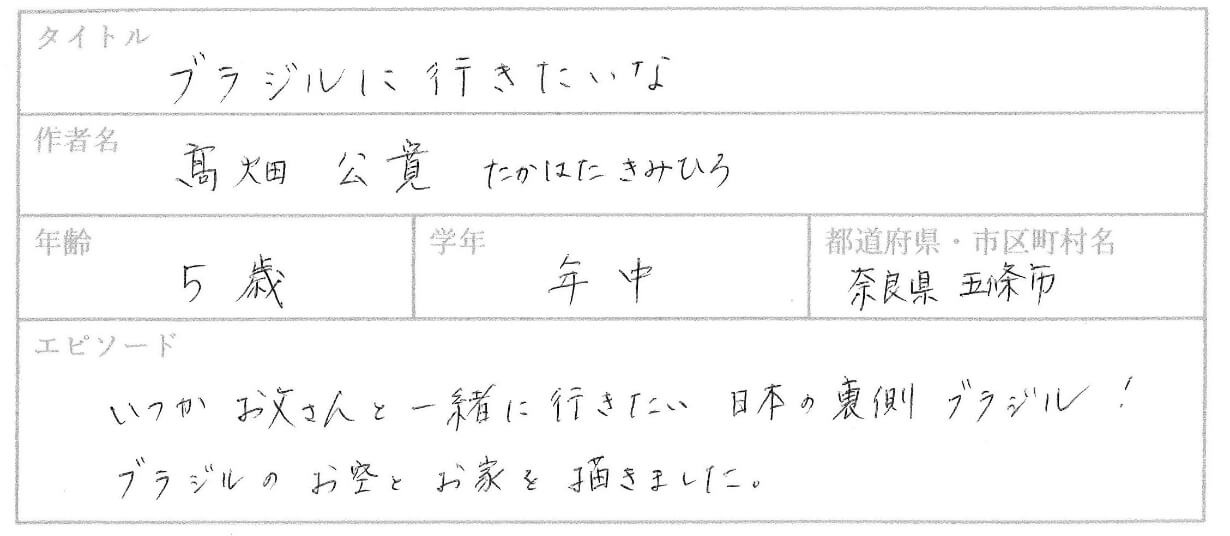 タイトル
ブラジルに行きたいな
作者名
髙畑 公寛 たかはた きみひろ
年齢
5歳
学年
年中
都道府県・市区町村名
奈良県 五條市
エピソード
いつか お父さんと一緒に行きたい 日本の裏側 ブラジル!
ブラジルのお空とお家を描きました。